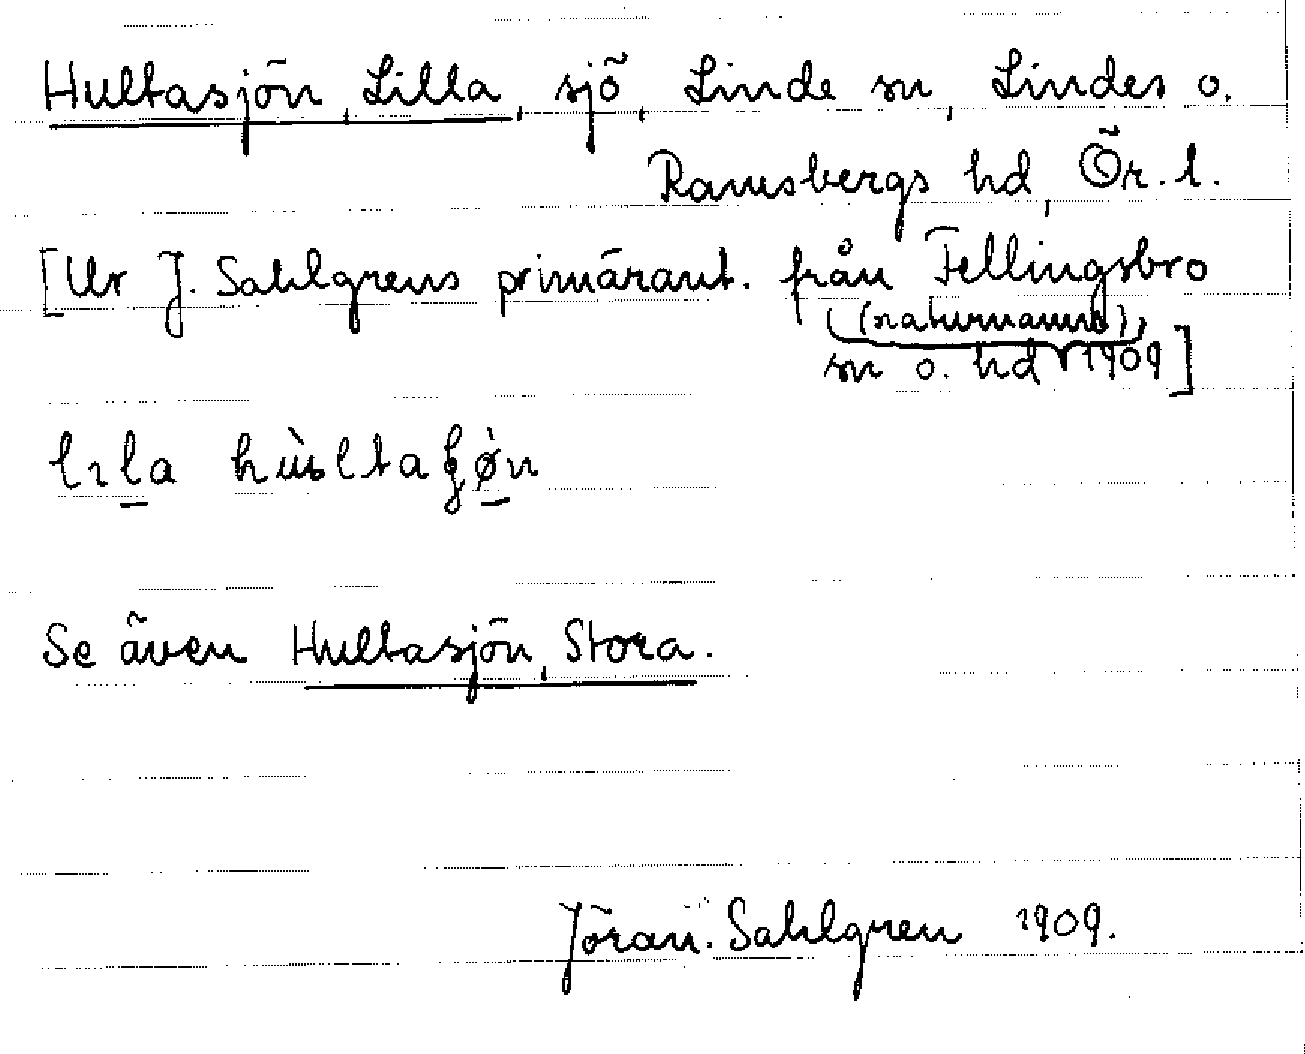 Hultasjön, Lilla, sjö, Linde sn, Lindes o.
Ramsbergs hd, Ör. l.
[Ur J. Sahlgrens primärant. från Fellingsbro
(naturnamn),
sn o. hd 1909]
Se även Hultasjön, Stora.
Jöran Sahlgren 1909.